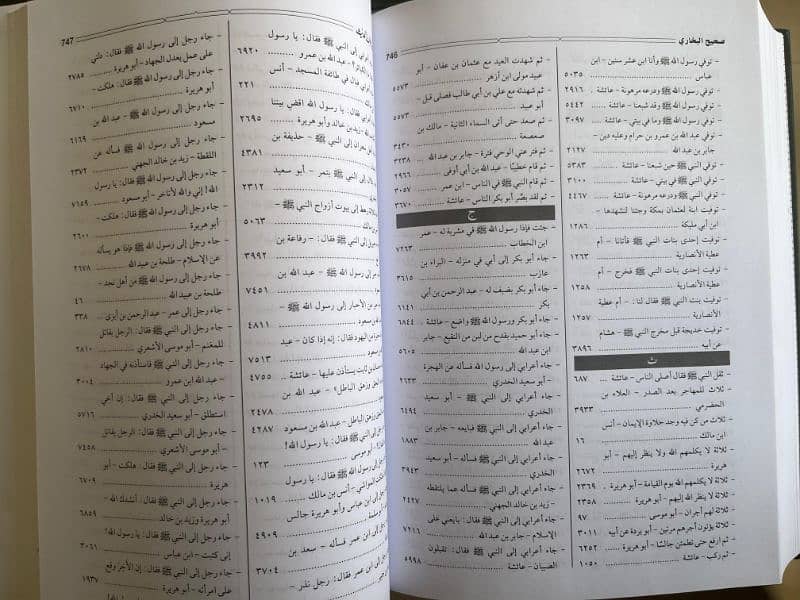 صحيح البخاري
746
- توفي رسول الله ﷺ وأنا ابن عشر سنين - ابن
عباس ٥٠٣٥
- توفي رسول الله ﷺ ودرعه مرهونة - عائشة . ٢٩١٦
- توفي رسول الله ﷺ وقد شبعنا - عائشة .. ٥٤٤٢
- توفي رسول الله ﷺ وما في بيتي - عائشة ٣٠٩٧
- توفي عبد الله بن عمرو بن حرام وعليه دين -
جابر بن عبد الله ٢١٢٧
- توفي النبي ﷺ حين شبعنا - عائشة ٥٣٨٣
- توفي النبي ﷺ في بيتي - عائشة ٣١٠٠
- توفي النبي ﷺ ودرعه مرهونة - عائشة ٤٤٦٧
- توفيت ابنة لعثمان بمكة وجئنا لنشهدها -
ابن أبي مليكة ١٢٨٦
- توفيت إحدى بنات النبي ﷺ فأتانا - أم
عطية الأنصارية ١٢٦٣
- توفيت إحدى بنات النبي ﷺ فخرج - أم
عطية الأنصارية ١٢٥٨
- توفيت بنت النبي ﷺ فقال لنا: - أم عطية
الأنصارية ١٢٥٧
- توفيت خديجة قبل مخرج النبي ﷺ - هشام
عن أبيه ٣٨٩٦
ث
- ثقل النبي ﷺ فقال أصلى الناس - عائشة ... ٦٨٧
- ثلاث للمهاجر بعد الصدر - العلاء بن
الحضرمي ٣٩٣٣
- ثلاث من كن فيه وجد حلاوة الإيمان - أنس
ابن مالك ١٦
- ثلاثة لا يكلمهم الله ولا ينظر إليهم - أبو
هريرة ٢٦٧٢
- ثلاثة لا يكلمهم الله يوم القيامة - أبو هريرة . ٢٣٦٩
- ثلاثة لا ينظر الله إليهم - أبو هريرة ٢٣٥٨
- ثلاثة لهم أجران - أبو موسى ٩٧
- ثلاثة يؤتون أجرهم مرتين - أبو بردة عن أبيه ٣٠١١
- ثم ارفع حتى تطمئن جالسًا - أبو هريرة ٦٢٥٢
- ثم ركب - عائشة ١٠٥٠
- ثم شهدت العيد مع عثمان بن عفان - أبو
عبيد مولى ابن أزهر ٥٥٧٣
- ثم شهدته مع علي بن أبي طالب فصلى قبل -
أبو عبيد ٥٥٧٣
- ثم صعد حتى أتى السماء الثانية - مالك بن
صعصعة ٣٤٣٠
- ثم فتر عني الوحي فترة - جابر بن عبد الله ٣٢٣٨
- ثم قام خطيبًا - عبد الله بن أبي أوفى ٢٩٦٦
- ثم قام النبي ﷺ في الناس - ابن عمر ٣٠٥٧
- ثم لقد بصّر أبو بكر الناس - عائشة ٣٦٧٠
ج
- جئت فإذا رسول الله ﷺ في مشربة له - عمر
ابن الخطاب ٧٢٦٣
- جاء أبو بكر إلى أبي في منزله - البراء بن
عازب ٣٦١٥
- جاء أبو بكر بضيف له - عبد الرحمن بن أبي
بكر ٦١٤١
- جاء أبو بكر ورسول الله ﷺ واضع - عائشة . ٦٨٤٤
- جاء أبو حميد بقدح من لبن من النقيع - جابر
ابن عبد الله ٥٦٠٥
- جاء أعرابي إلى رسول الله ﷺ فسأله عن الهجرة
- أبو سعيد الخدري ٢٦٣٣
- جاء أعرابي إلى النبي ﷺ - أبو سعيد
الخدري ٦٤٩٤
- جاء أعرابي إلى النبي ﷺ فبايعه - جابر بن
عبد الله ١٨٨٣
- جاء أعرابي إلى النبي ﷺ فسأله - أبو سعيد
الخدري ٣٩٤٣
- جاء أعرابي إلى النبي ﷺ فسأله عما يلتقطه
- زيد بن خالد الجهني ٢٤٢٧
- جاء أعرابي إلى النبي ﷺ فقال: بايعني على
الإسلام - جابر بن عبد الله ٧٢١٦
- جاء أعرابي إلى النبي ﷺ فقال: تقبلون
الصبيان - عائشة ٥٩٩٨
747
إلى النبي ﷺ فقال: يا رسول
عبد الله بن عمرو ٦٩٢٠
في طائفة المسجد - أنس
٢٢١
فقال: يا رسول الله اقض بيننا
زيد بن خالد وأبو هريرة ٢٦٩٥
نجران إلى النبي ﷺ - حذيفة بن
٤٣٨١
إلى النبي ﷺ بتمر - أبو سعيد
٢٣١٢
رهط إلى بيوت أزواج النبي ﷺ -
بن مالك ٥٠٦٣
إلى النبي ﷺ فقال: - رفاعة بن
٣٩٩٢
إلى رسول الله ﷺ - عبد الله بن
٧٤٥١
من الأحبار إلى رسول الله ﷺ -
بن مسعود ٤٨١١
من اليهود فقال: إنه إذا كان - عبد
٧٥١٣
بن ثابت يستأذن عليها - عائشة ٤٧٥٥
الحق وزهق الباطل» - عبد الله بن
٢٤٧٨
وزهق الباطل - عبد الله بن مسعود ٤٢٨٧
إلى النبي ﷺ فقال: يا رسول الله!
أبو موسى ١٢٣
إلى النبي ﷺ فقال: يا رسول
المواشي - أنس بن مالك ١٠١٩
إلى ابن عباس وأبو هريرة جالس
٤٩٠٩
إلى ابن عمر فسأله - سعد بن
٣٧٠٤
إلى ابن عمر فقال: رجل نذر -
- جاء رجل إلى رسول الله ﷺ فقال: دلني
على عمل يعدل الجهاد - أبو هريرة ٢٧٨٥
- جاء رجل إلى رسول الله ﷺ فقال: هلكت -
أبو هريرة ٦٧١٠
- جاء رجل إلى رسول الله ﷺ - عبد الله بن
مسعود ٦١٦٩
- جاء رجل إلى رسول الله ﷺ فسأله عن
اللقطة - زيد بن خالد الجهني ٢٣٧٢
- جاء رجل إلى رسول الله ﷺ فقال: يا رسول
الله! إني والله لأتأخر - أبو مسعود ٧١٥٩
- جاء رجل إلى رسول الله ﷺ فقال: هلكت -
أبو هريرة ٢٦٠٠
- جاء رجل إلى رسول الله ﷺ فإذا هو يسأله
عن الإسلام - طلحة بن عبيد الله ٢٦٧٨
- جاء رجل إلى رسول الله ﷺ من أهل نجد -
طلحة بن عبيد الله ٤٦
- جاء رجل إلى عمر - عبد الرحمن بن أبزى .. ٣٣٨
- جاء رجل إلى النبي ﷺ فقال: الرجل يقاتل
للمغنم - أبو موسى الأشعري ٢٨١٠
- جاء رجل إلى النبي ﷺ فاستأذنه في الجهاد
- عبد الله ابن عمرو ٣٠٠٤
- جاء رجل إلى النبي ﷺ فقال: إن أخي
استطلق - أبو سعيد الخدري ٥٧١٦
- جاء رجل إلى النبي ﷺ فقال: الرجل يقاتل
- أبو موسى الأشعري ٧٤٥٨
- جاء رجل إلى النبي ﷺ فقال: هلكت - أبو
هريرة ٦٧٠٩
- جاء رجل إلى النبي ﷺ فقال: أنشدك الله -
أبو هريرة وزيد بن خالد ٦٨٥٩
- جاء رجل إلى النبي ﷺ فقال: يا رسول الله!
إني كتبت - ابن عباس ٣٠٦١
- جاء رجل إلى النبي ﷺ فقال: إن الآخر وقع
على امرأته - أبو هريرة ١٩٣٧